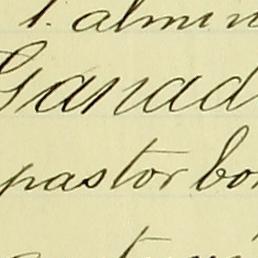 1. almin
Ganad
pastor bo